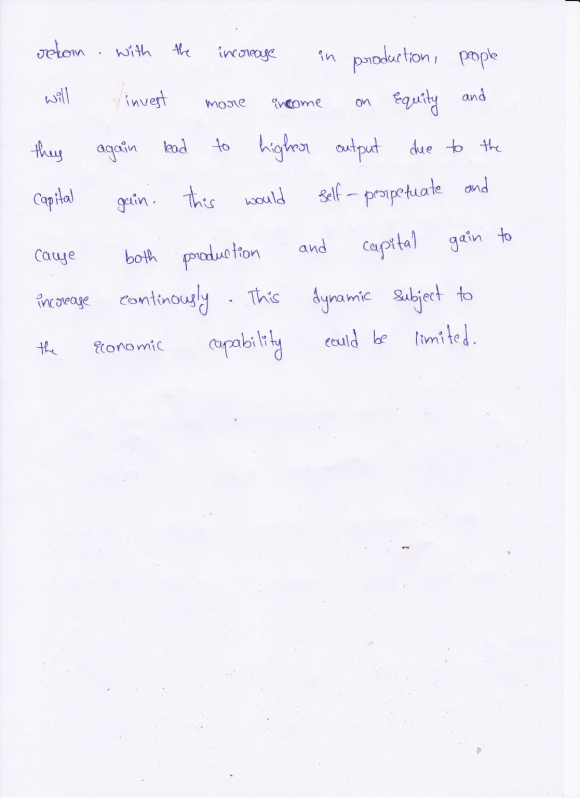 return. With the increase in production, people
will invest more income on Equity and
thus again lead to higher output due to the
Capital gain. This would self-perpetuate and
cause both production and capital gain to
increase continously. This dynamic subject to
the economic capability could be limited.